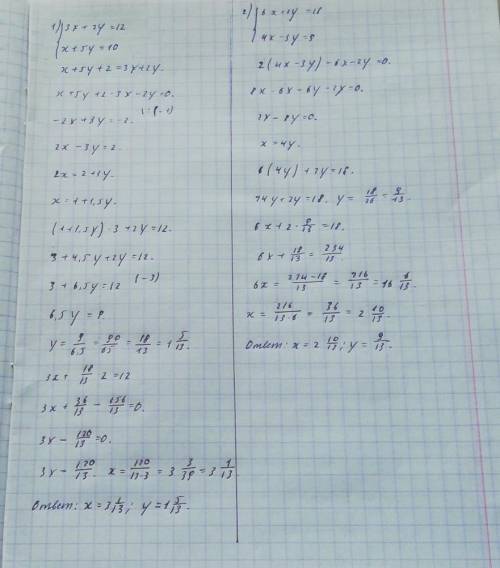 1) { 3x + 2y = 12
x + 5y = 10
x + 5y + 2 = 3x + 2y.
x + 5y + 2 - 3x - 2y = 0.
-2x + 3y = -2.
2x - 3y = 2.
2x = 2 + 3y.
x = 1 + 1,5y.
(1 + 1,5y) · 3 + 2y = 12.
3 + 4,5y + 2y = 12.
3 + 6,5y = 12 (-3)
6,5y = 9.
y = 9/6,5 = 90/65 = 18/13 = 1 5/13.
3x + 18/13 · 2 = 12
3x + 36/13 - 156/13 = 0.
3x - 120/13 = 0.
3x - 120/13. x = 120/13·3 = 3 3/39 = 3 1/13.
Ответ: x = 3 1/13; y = 1 5/13.
2) { 6x + 2y = 18
4x - 3y = 9
2(4x - 3y) - 6x - 2y = 0.
8x - 6x - 6y - 2y = 0.
2x - 8y = 0.
x = 4y.
6(4y) + 2y = 18.
24y + 2y = 18. y = 18/26 = 9/13.
6x + 2 · 9/13 = 18.
6x + 18/13 = 234/13.
6x = 234-18/13 = 216/13 = 16 8/13.
x = 216/13·6 = 36/13 = 2 10/13.
Ответ: x = 2 10/13; y = 9/13.